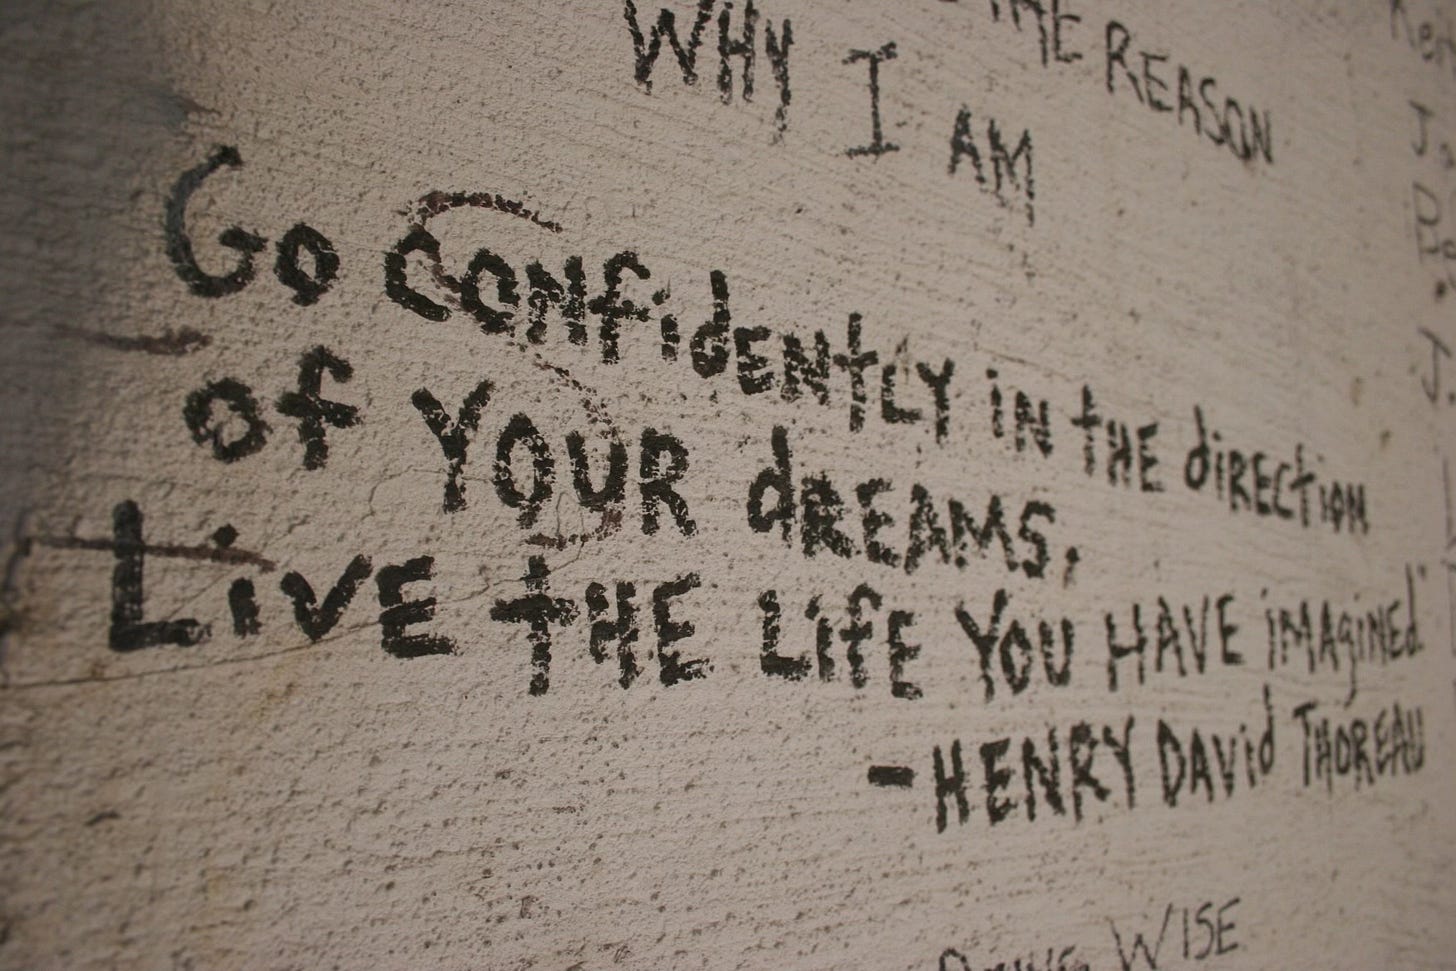 THE REASON
WHY I AM
Go CONfidENtLY iN tHE diRECtiON
of YOUR dREAMS.
LiVE tHE LifE YOU HAVE iMAgiNEd"
- HENRY DAVid THOREAU
WISE